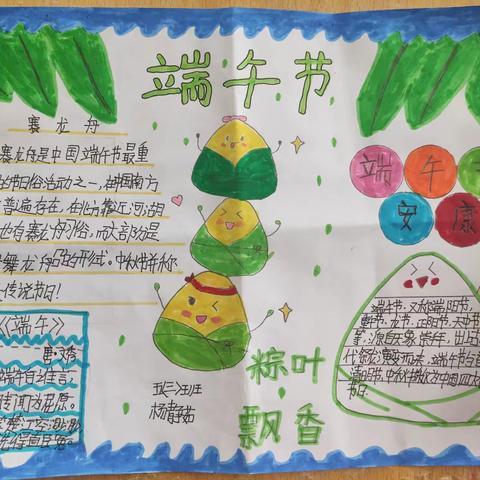 端午节
赛龙舟
赛龙舟是中国端午节最重
的节日俗活动之一,在中国南方
普遍存在,在北方靠近河湖
也有赛龙舟习俗,而大部分是
舞龙舟的形式。中秋节并称
传说节日!
端午
安康
端午节,又称端阳节,
龙节、正阳节、天中节
等,源自天象崇拜,由上
代祭龙演变而来。端午节与
清明节、中秋节并称为中国四大
节日。
《端午》
唐·文秀
端午自言,
传闻为屈原。
楚江空渺渺,
洗得直臣冤。
杨静茹
粽叶
飘香